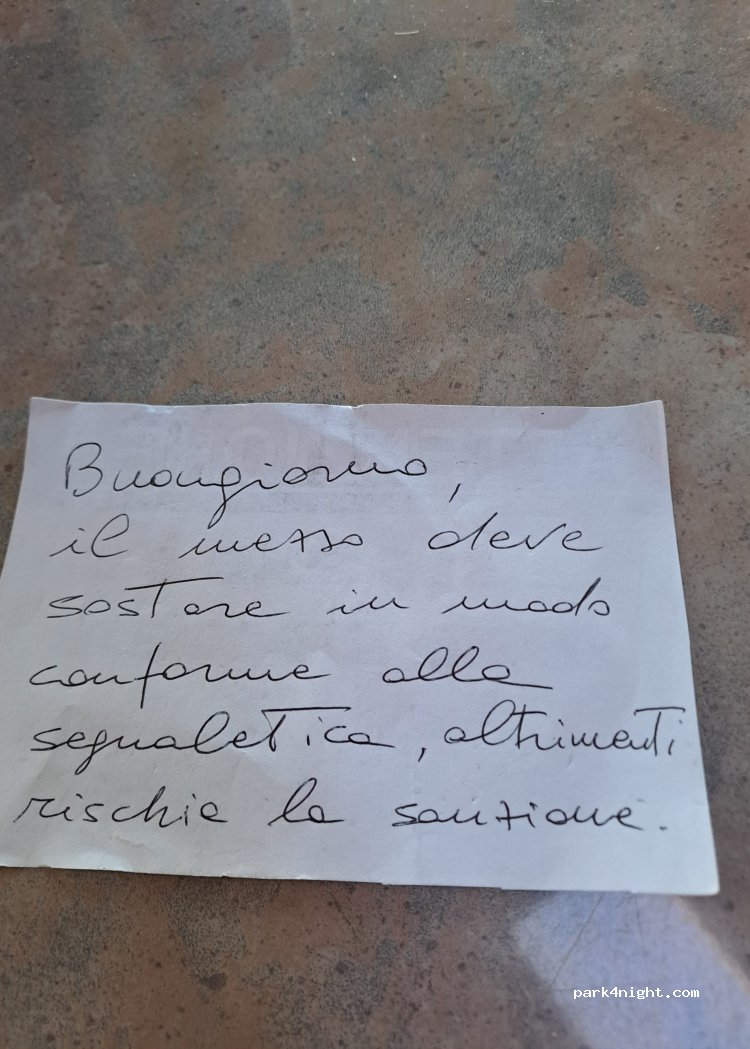 Buongiorno,
il mezzo deve
sostare in modo
conforme alla
segnaletica, altrimenti
rischia la sanzione.
park4night.com